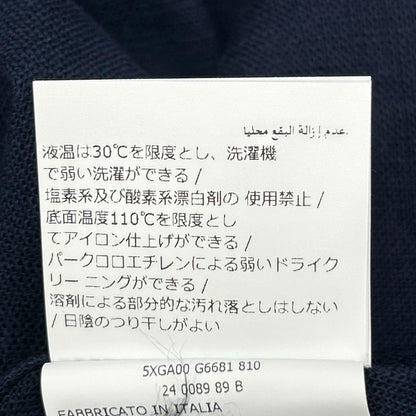 عدم إزالة البقع محليا.
液温は30℃を限度とし、洗濯機
で弱い洗濯ができる /
塩素系及び酸素系漂白剤の 使用禁止 /
底面温度110℃を限度とし
てアイロン仕上げができる /
パークロロエチレンによる弱いドライク
リー ニングができる /
溶剤による部分的な汚れ落としはしない
/ 日陰のつり干しがよい
5XGA00 G6681 810
24 0089 89 B
FABBRICATO IN ITALIA